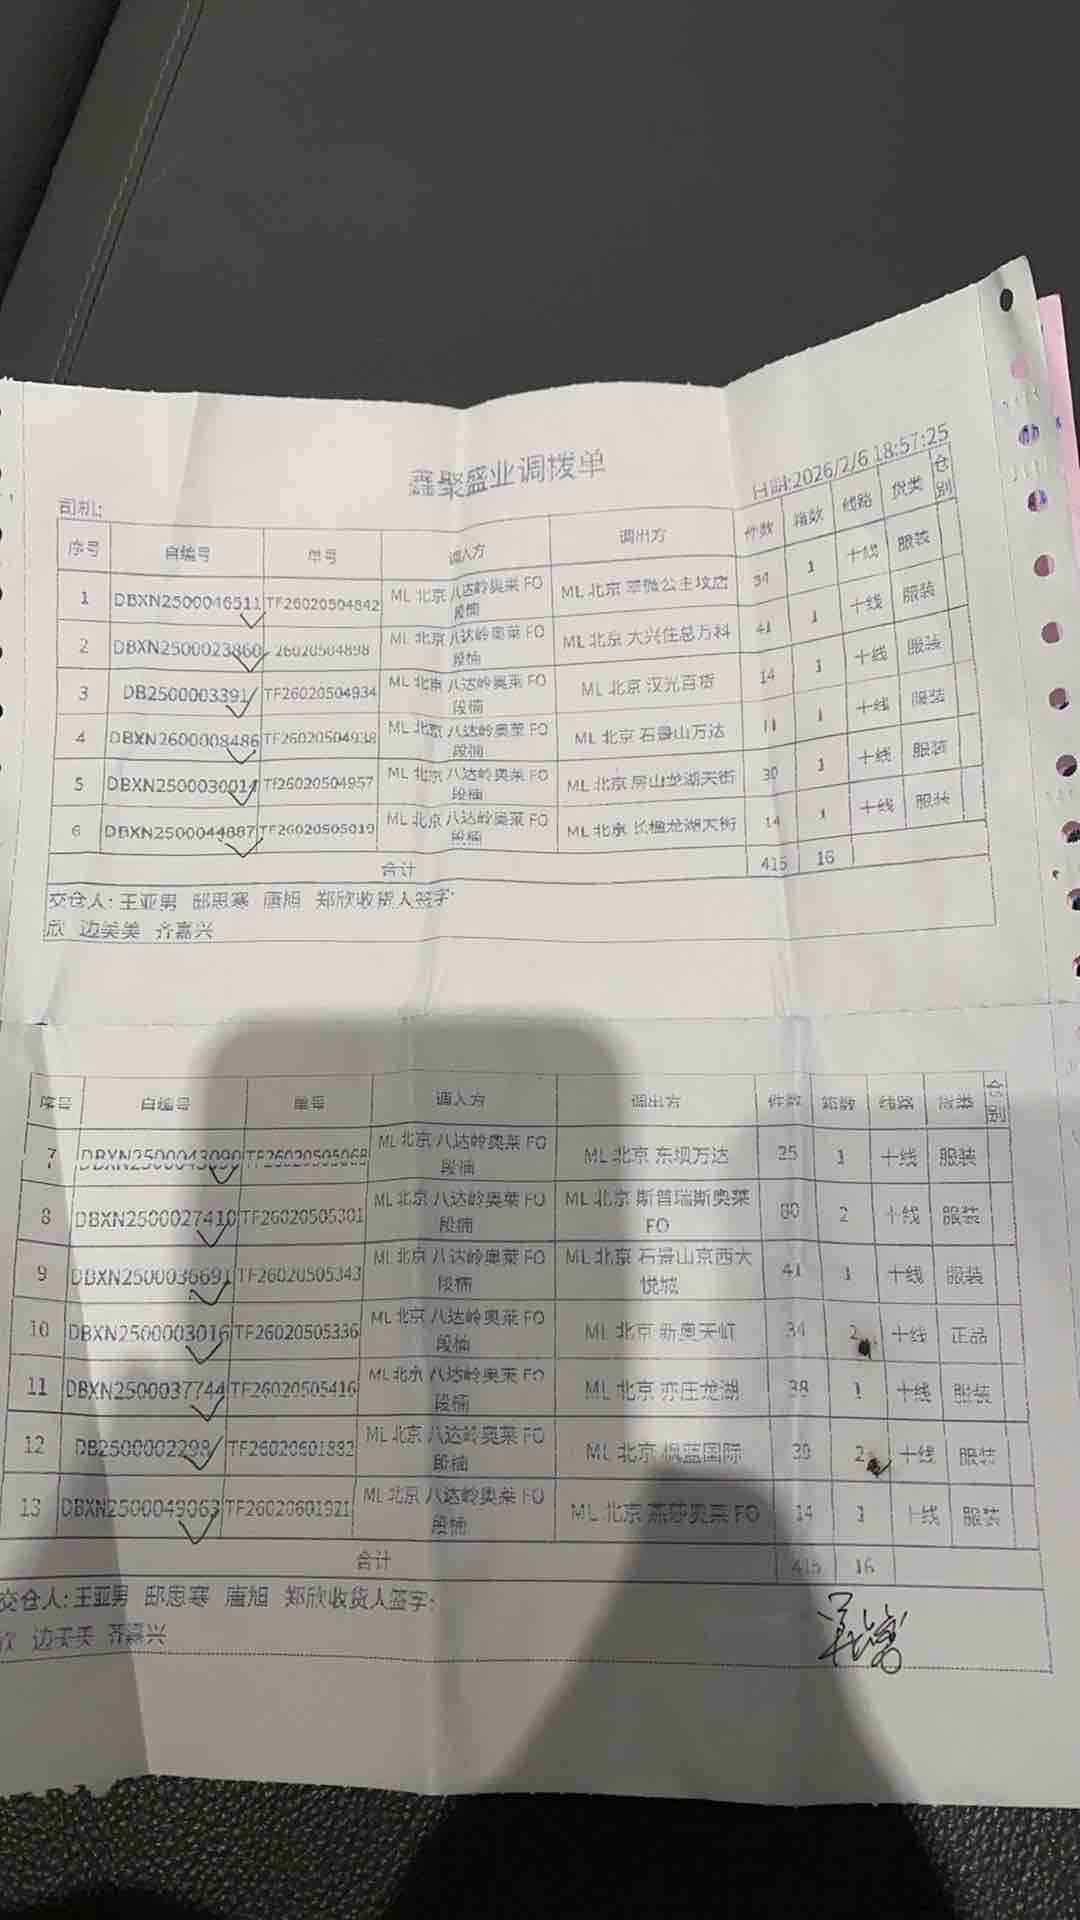 鑫聚盛业调拨单
司机:
日期:2026/2/6 18:57:25
序号 自编号 单号 调入方 调出方 件数 箱数 线路 货类 仓别
1 DBXN2500046511 TF26020504842 ML 北京 八达岭奥莱 FO 段楠 ML 北京 翠微公主坟店 34 1 十线 服装
2 DBXN2500023860 26020504898 ML 北京 八达岭奥莱 FO 段楠 ML 北京 大兴住总万科 41 1 十线 服装
3 DB2500003391 TF26020504934 ML 北京 八达岭奥莱 FO 段楠 ML 北京 汉光百货 14 1 十线 服装
4 DBXN2600008486 TF26020504938 ML 北京 八达岭奥莱 FO 段楠 ML 北京 石景山万达 11 1 十线 服装
5 DBXN2500030014 Tf26020504957 ML 北京 八达岭奥莱 FO 段楠 ML 北京 房山龙湖天街 30 1 十线 服装
6 DBXN2500044887 TF26020505019 ML 北京 八达岭奥莱 FO 段楠 ML 北京 长楹龙湖天街 14 1 十线 服装
合计 415 16
交仓人: 王亚男 邸思寒 唐旭 郑欣收货人签字:
欣 边美美 齐嘉兴
序号 自编号 单号 调入方 调出方 件数 箱数 线路 货类 仓别
7 DBXN2500043090 TF26020505068 ML 北京 八达岭奥莱 FO 段楠 ML 北京 东坝万达 25 1 十线 服装
8 DBXN2500027410 TF26020505301 ML 北京 八达岭奥莱 FO 段楠 ML 北京 斯普瑞斯奥莱 FO 80 2 十线 服装
9 DBXN2500036691 TF26020505343 ML 北京 八达岭奥莱 FO 段楠 ML 北京 石景山京西大悦城 41 1 十线 服装
10 DBXN2500003016 TF26020505336 ML 北京 八达岭奥莱 FO 段楠 ML 北京 新奥天虹 34 2 十线 正品
11 DBXN2500037744 TF26020505416 ML 北京 八达岭奥莱 FO 段楠 ML 北京 亦庄龙湖 38 1 十线 服装
12 DB2500002298 TF26020601882 ML 北京 八达岭奥莱 FO 段楠 ML 北京 枫蓝国际 39 2 十线 服装
13 DBXN2500049063 TF26020601921 ML 北京 八达岭奥莱 FO 段楠 ML 北京 燕莎奥莱 FO 14 1 十线 服装
合计 415 16
交仓人: 王亚男 邸思寒 唐旭 郑欣收货人签字:
欣 边美美 齐嘉兴